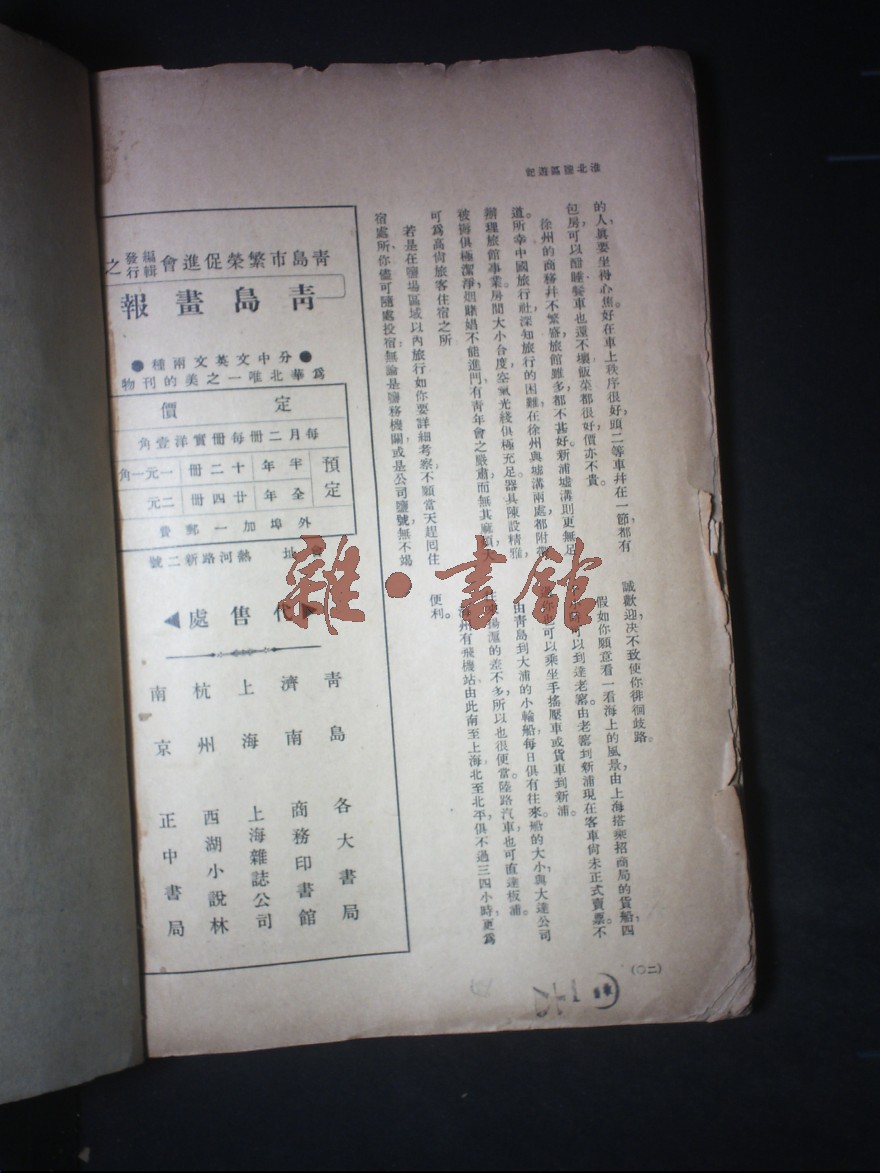 淮北鹽區遊記
的人，眞要坐得心焦。好在車上秩序很好，頭二等車幷在一節，都有
包房，可以酣睡，餐車也還不壞，飯菜都很好，價亦不貴。
徐州的商務幷不繁盛，旅館雖多，都不甚好。新浦墟溝則更無足
道。所幸中國旅行社，深知旅行的困難，在徐州與墟溝兩處，都附帶
辦理旅館事業。房間大小合度，空氣光綫俱極充足，器具陳設精雅，
被褥俱極潔淨，烟賭娼不能進門，有青年會之嚴肅，而無其麻煩，
可爲高尙旅客住宿之所
若是在鹽場區域以內旅行，如你要詳細考察，不願當天趕回住
宿處所，你儘可隨處投宿，無論是鹽務機關或是公司鹽號，無不竭
誠歡迎，决不致使你徘徊歧路。
假如你願意看一看海上的風景，由上海搭乘招商局的貨船，四
可以到達老窰。由老窰到新浦，現在客車尙未正式賣票，不
可以乘坐手搖壓車或貨車到新浦。
由靑島到大浦的小輪船，每日俱有往來，船的大小，與大達公司
揚滬的差不多，所以也很便當。陸路汽車，也可直達板浦。
州有飛機站，由此南至上海，北至北平，俱不過三四小時，更爲
便利。
（二〇）
靑島市繁榮促進會編輯發行之
靑島畫報
●分中文英文兩種●
爲華北唯一之美的刊物
定價
每月二册每册實洋壹角
預定
半年十二册 一元一角
全年廿四册 二元
外埠加一郵費
會址 熱河路新二號
代售處
靑島 各大書局
濟南 商務印書館
上海 上海雜誌公司
杭州 西湖小說林
南京 正中書局
雜·書館